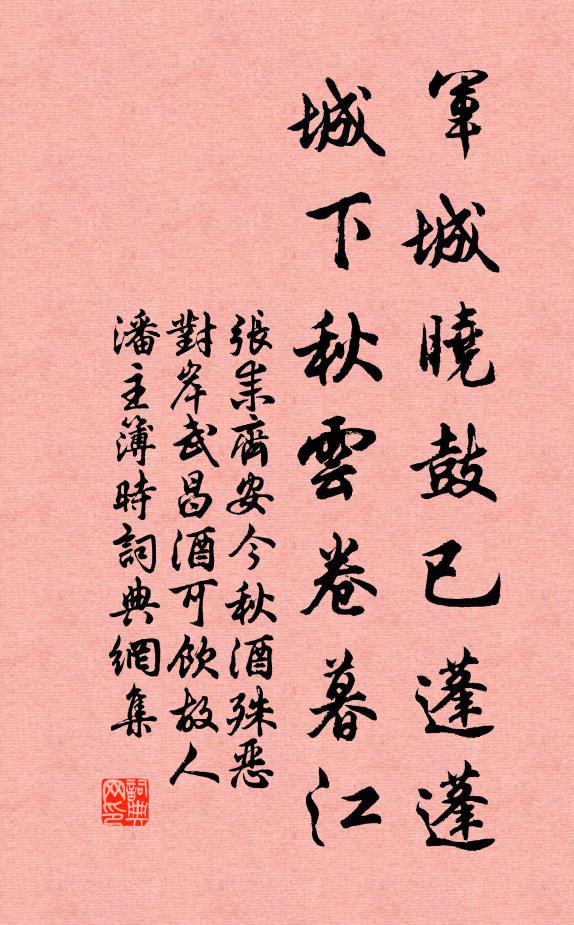 軍城曉鼓已蓬蓬
城下秋雲卷暮江
張耒齊安今秋酒殊惡
對岸武昌酒可飲故人
潘主簿時詞典網集
詞典
网印